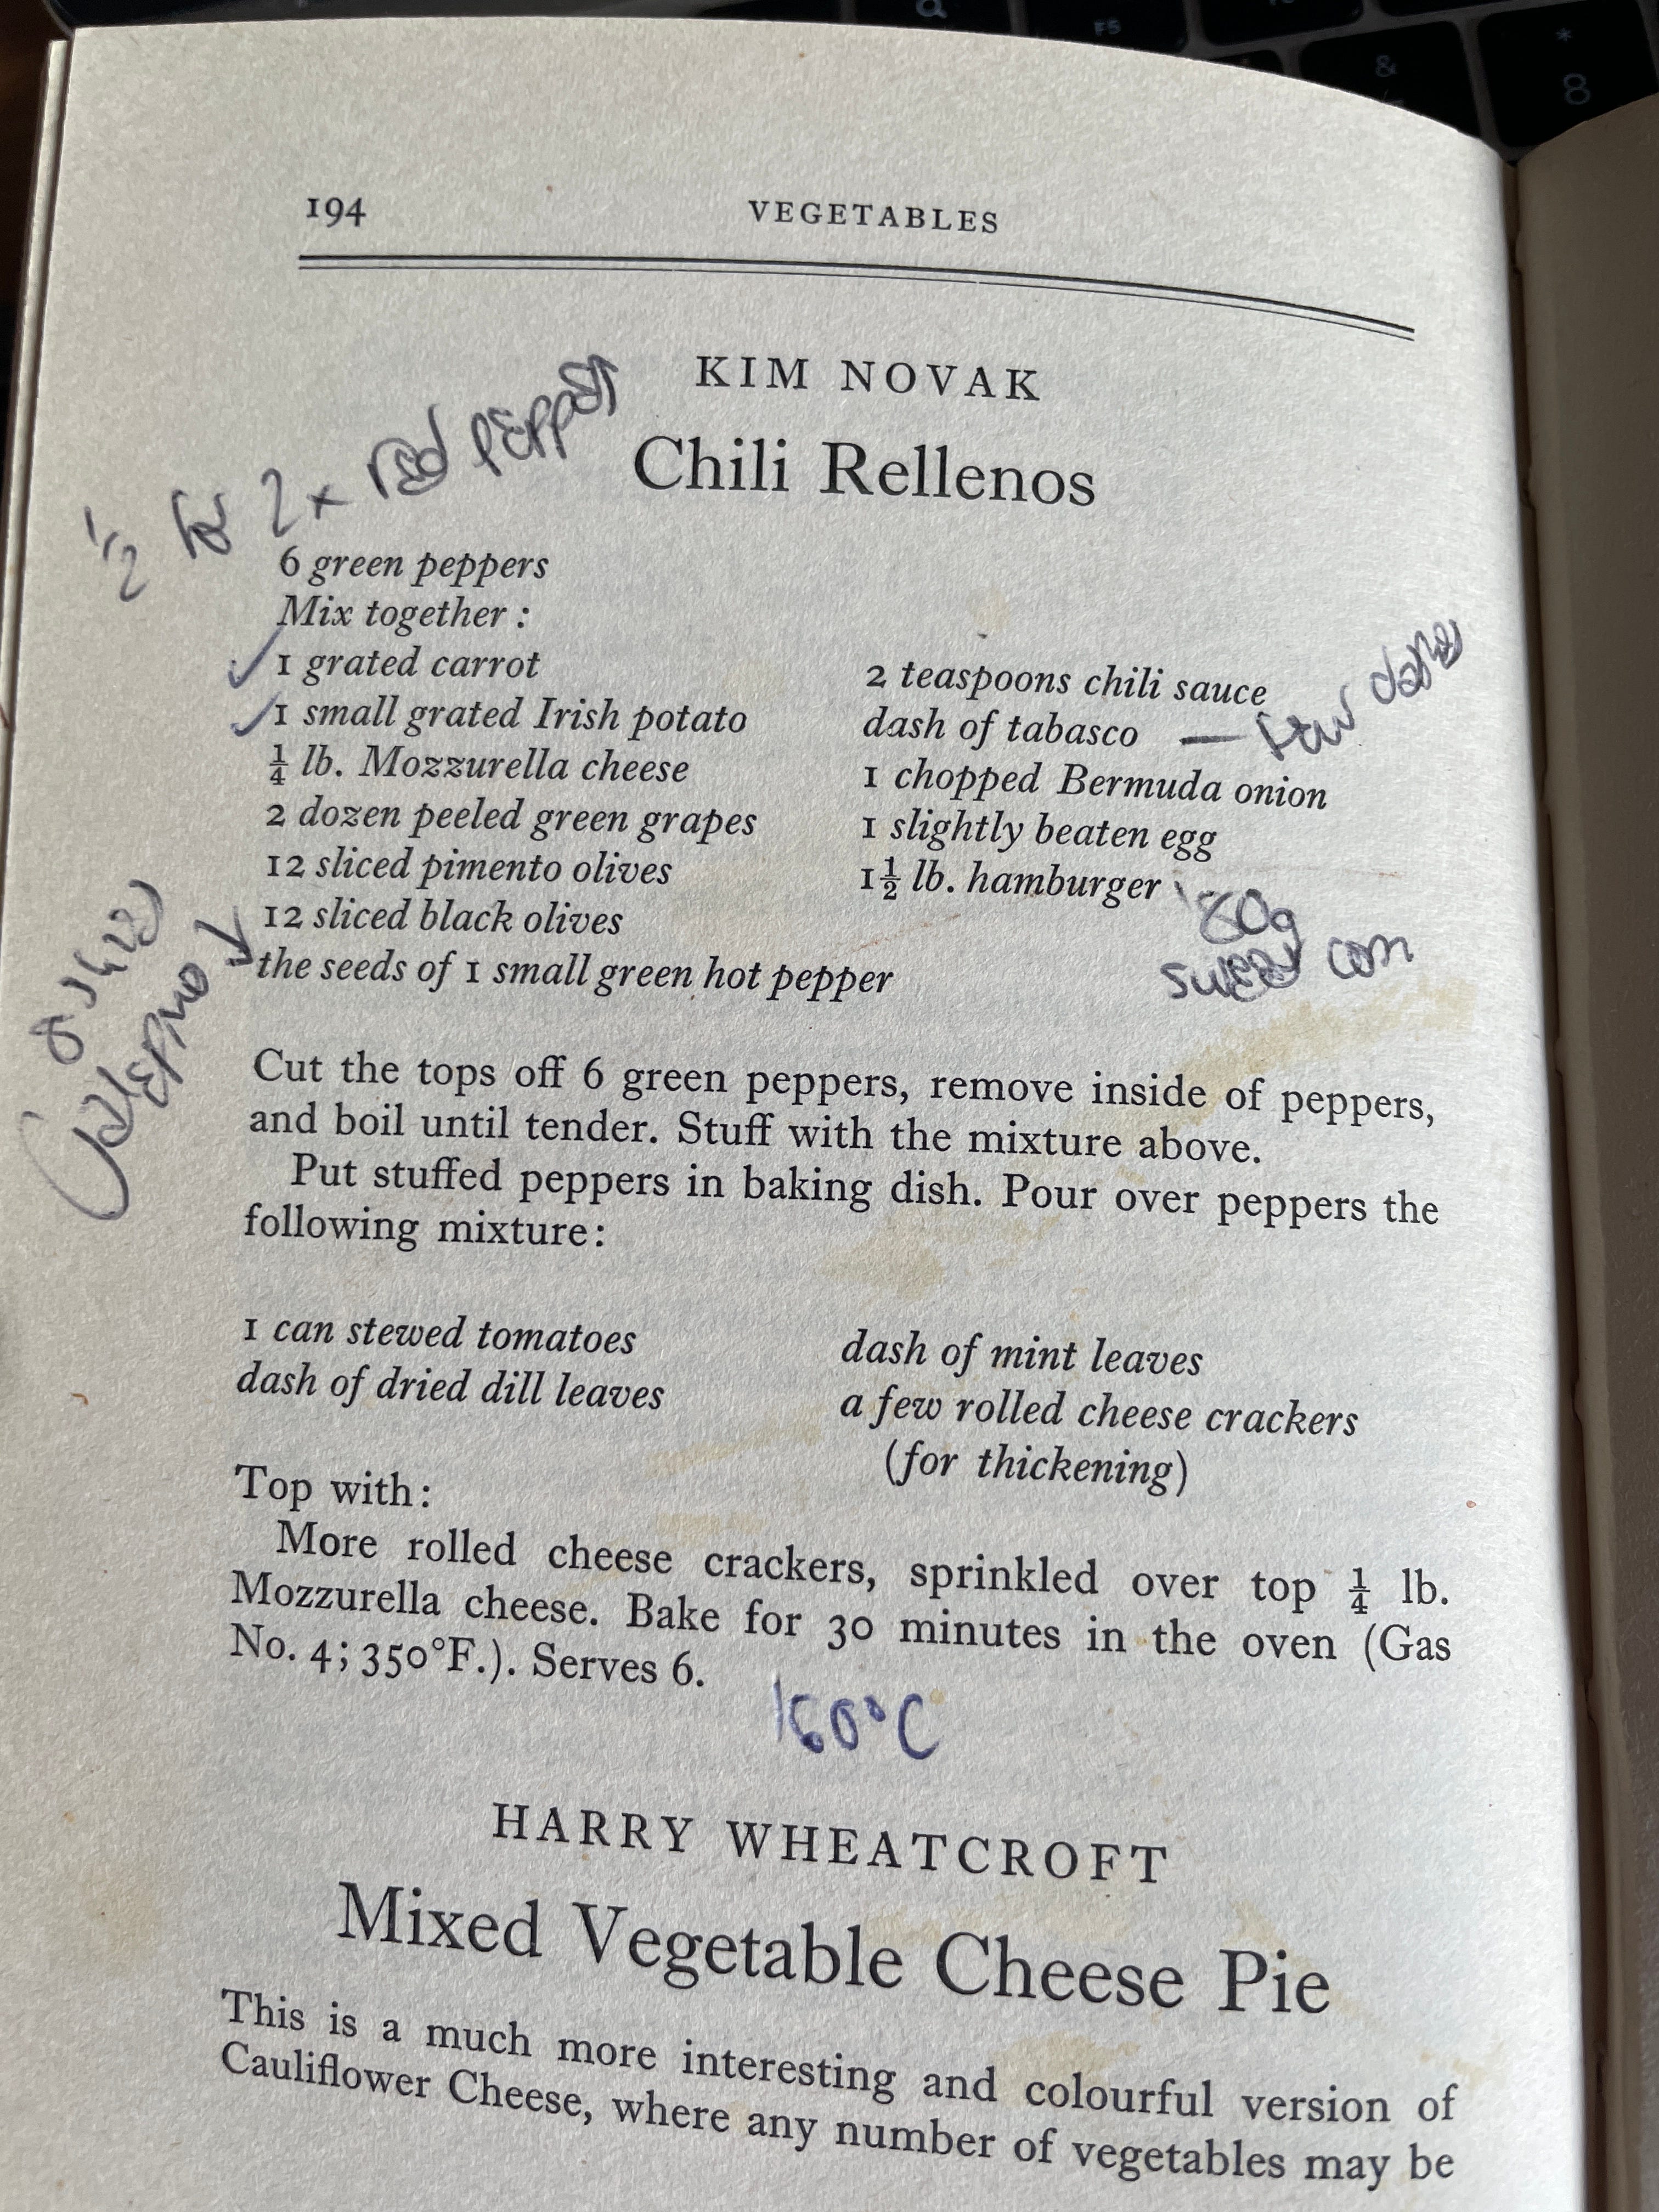 194 VEGETABLES
KIM NOVAK
Chili Rellenos
½ for 2 x red peppers
6 green peppers
Mix together :
✓ 1 grated carrot
✓ 1 small grated Irish potato
¼ lb. Mozzurella cheese
2 dozen peeled green grapes
12 sliced pimento olives
12 sliced black olives
the seeds of 1 small green hot pepper
2 teaspoons chili sauce
dash of tabasco — few dashes
1 chopped Bermuda onion
1 slightly beaten egg
1½ lb. hamburger
80g
sweet corn
Cut the tops off 6 green peppers, remove inside of peppers,
and boil until tender. Stuff with the mixture above.
Put stuffed peppers in baking dish. Pour over peppers the
following mixture:
1 can stewed tomatoes
dash of dried dill leaves
dash of mint leaves
a few rolled cheese crackers
(for thickening)
Top with:
More rolled cheese crackers, sprinkled over top ¼ lb.
Mozzurella cheese. Bake for 30 minutes in the oven (Gas
No. 4; 350°F.). Serves 6.
160°C
HARRY WHEATCROFT
Mixed Vegetable Cheese Pie
This is a much more interesting and colourful version of
Cauliflower Cheese, where any number of vegetables may be